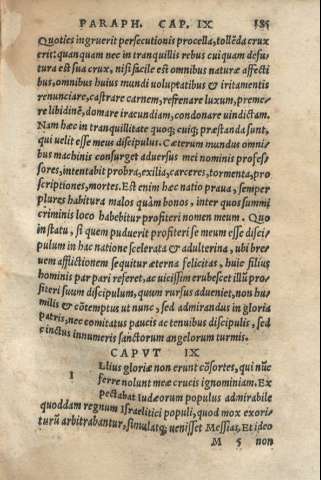 PARAPH. CAP. IX 185
Quoties ingruerit persecutionis procella, tollẽda crux
erit: quanquam nec in tranquillis rebus cuiquam defu-
tura est sua crux, nisi facile est omnibus naturæ affecti
bus, omnibus huius mundi voluptatibus & irritamentis
renunciare, castrare carnem, refrenare luxum, preme-
re libidinẽ, domare iracundiam, condonare uindictam.
Nam hæc in tranquillitate quoq; cuiq; præstanda sunt,
qui uelit esse meus discipulus. Cæterum mundus omni-
bus machinis consurget aduersus mei nominis profes-
sores, intentabit probra, exilia, carceres, tormenta, pro
scriptiones, mortes. Est enim hæc natio praua, semper
plures habitura malos quàm bonos, inter quos summi
criminis loco habebitur profiteri nomen meum. Quo
in statu, si quem puduerit profiteri se meum esse disci-
pulum in hac natione scelerata & adulterina, ubi bre-
uem afflictionem sequitur æterna felicitas, huic filius
hominis par pari referet, ac uicissim erubescet illũ pro-
fiteri suum discipulum, quum rursus adueniet, non hu-
milis & cõtemptus ut nunc, sed admirandus in gloria
patris, nec comitatus paucis ac tenuibus discipulis, sed
cinctus innumeris sanctorum angelorum turmis.
CAPVT IX
1 Illius gloriæ non erunt cõsortes, qui nũc
ferre nolunt meæ crucis ignominiam. Ex
pectabat Iudæorum populus admirabile
quoddam regnum Israelitici populi, quod mox exori-
turũ arbitrabantur, simulatq; uenisset Messias. Et ideo
M 5 non